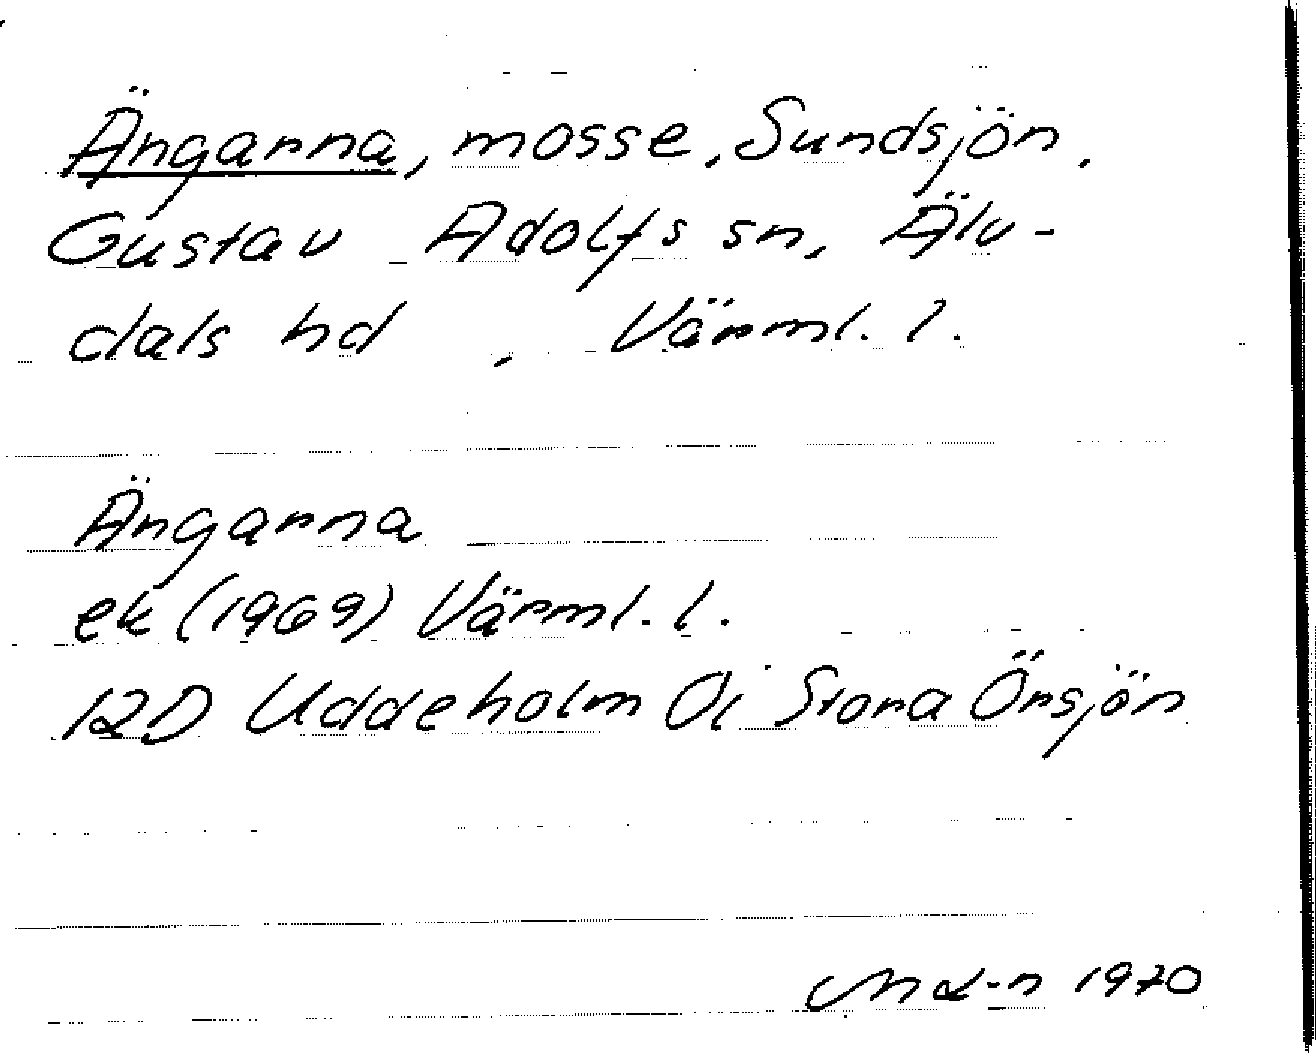 Ängarna, mosse, Sundsjön,
Gustav Adolfs sn, Älv-
dals hd , Värml. l.
Ängarna
ek (1969) Värml. l.
12D Uddeholm 0i Stora Örsjön
1970